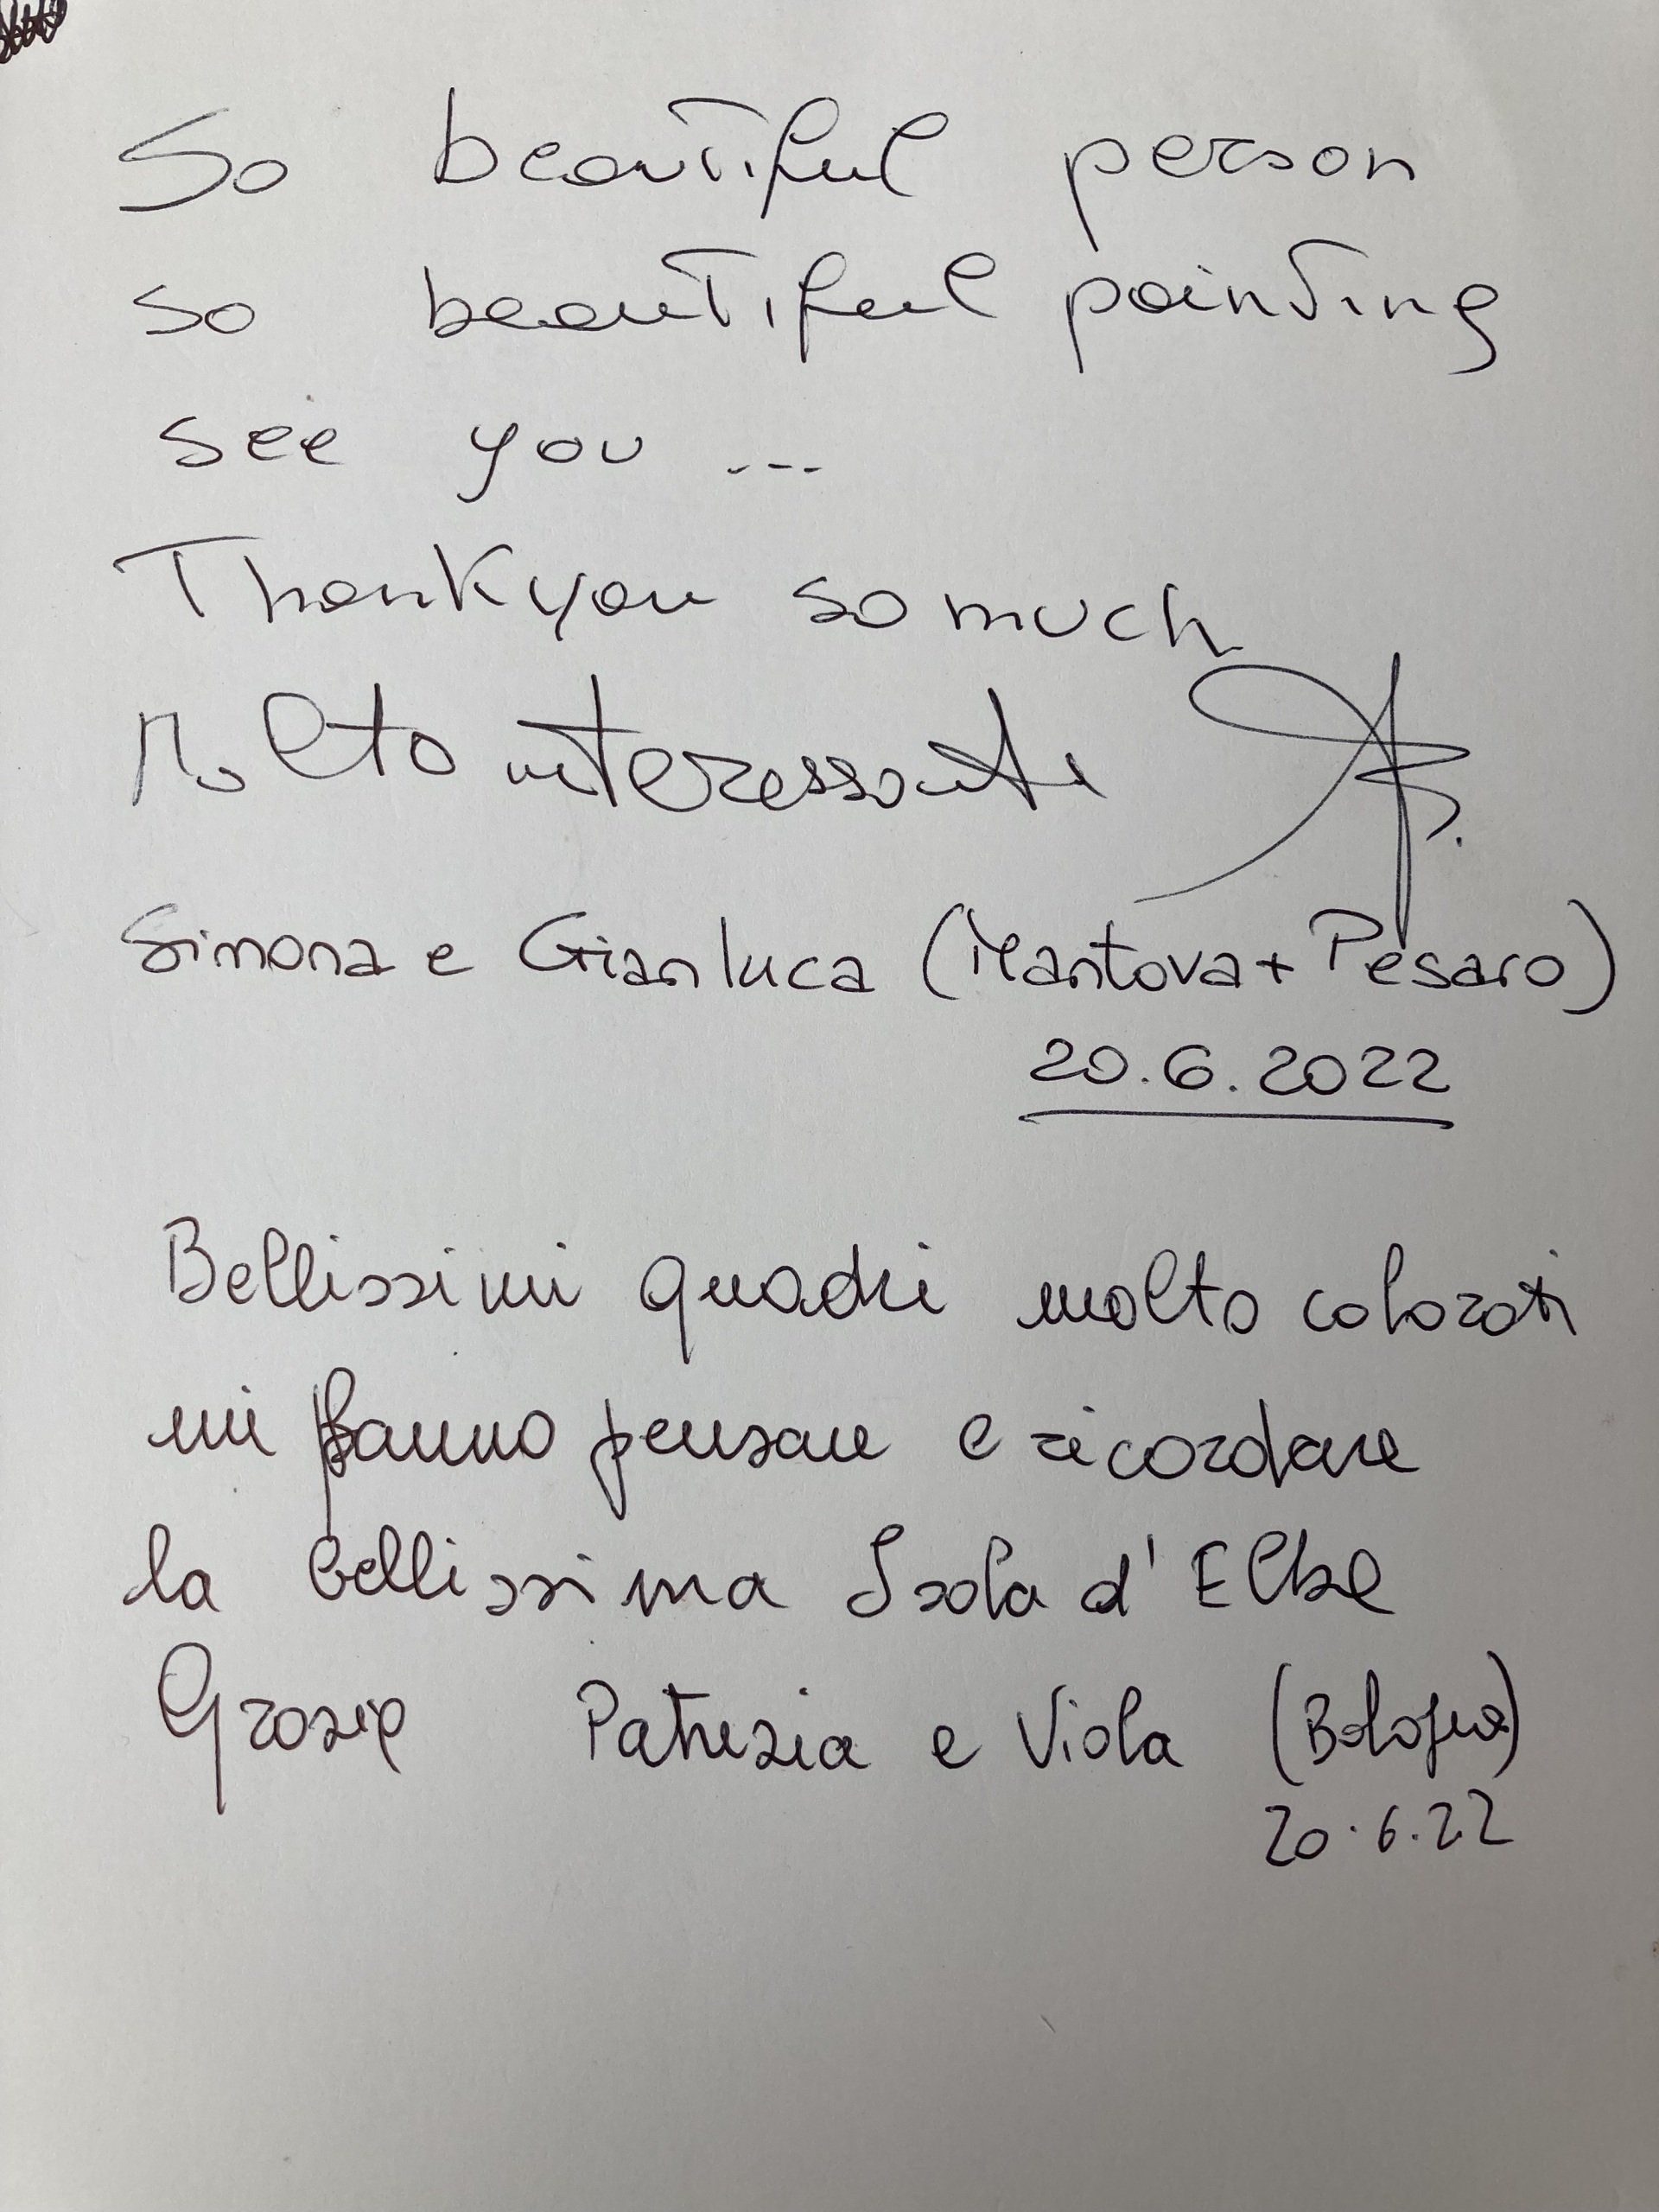 So beautiful person
so beautiful painting
see you ...
Thank you so much
Molto interessante
Simona e Gianluca (Mantova + Pesaro)
20.6.2022
Bellissimi quadri molto colorati
mi fanno pensare e ricordare
la bellissima Isola d'Elba
Grazie Patrizia e Viola (Bologna)
20.6.22